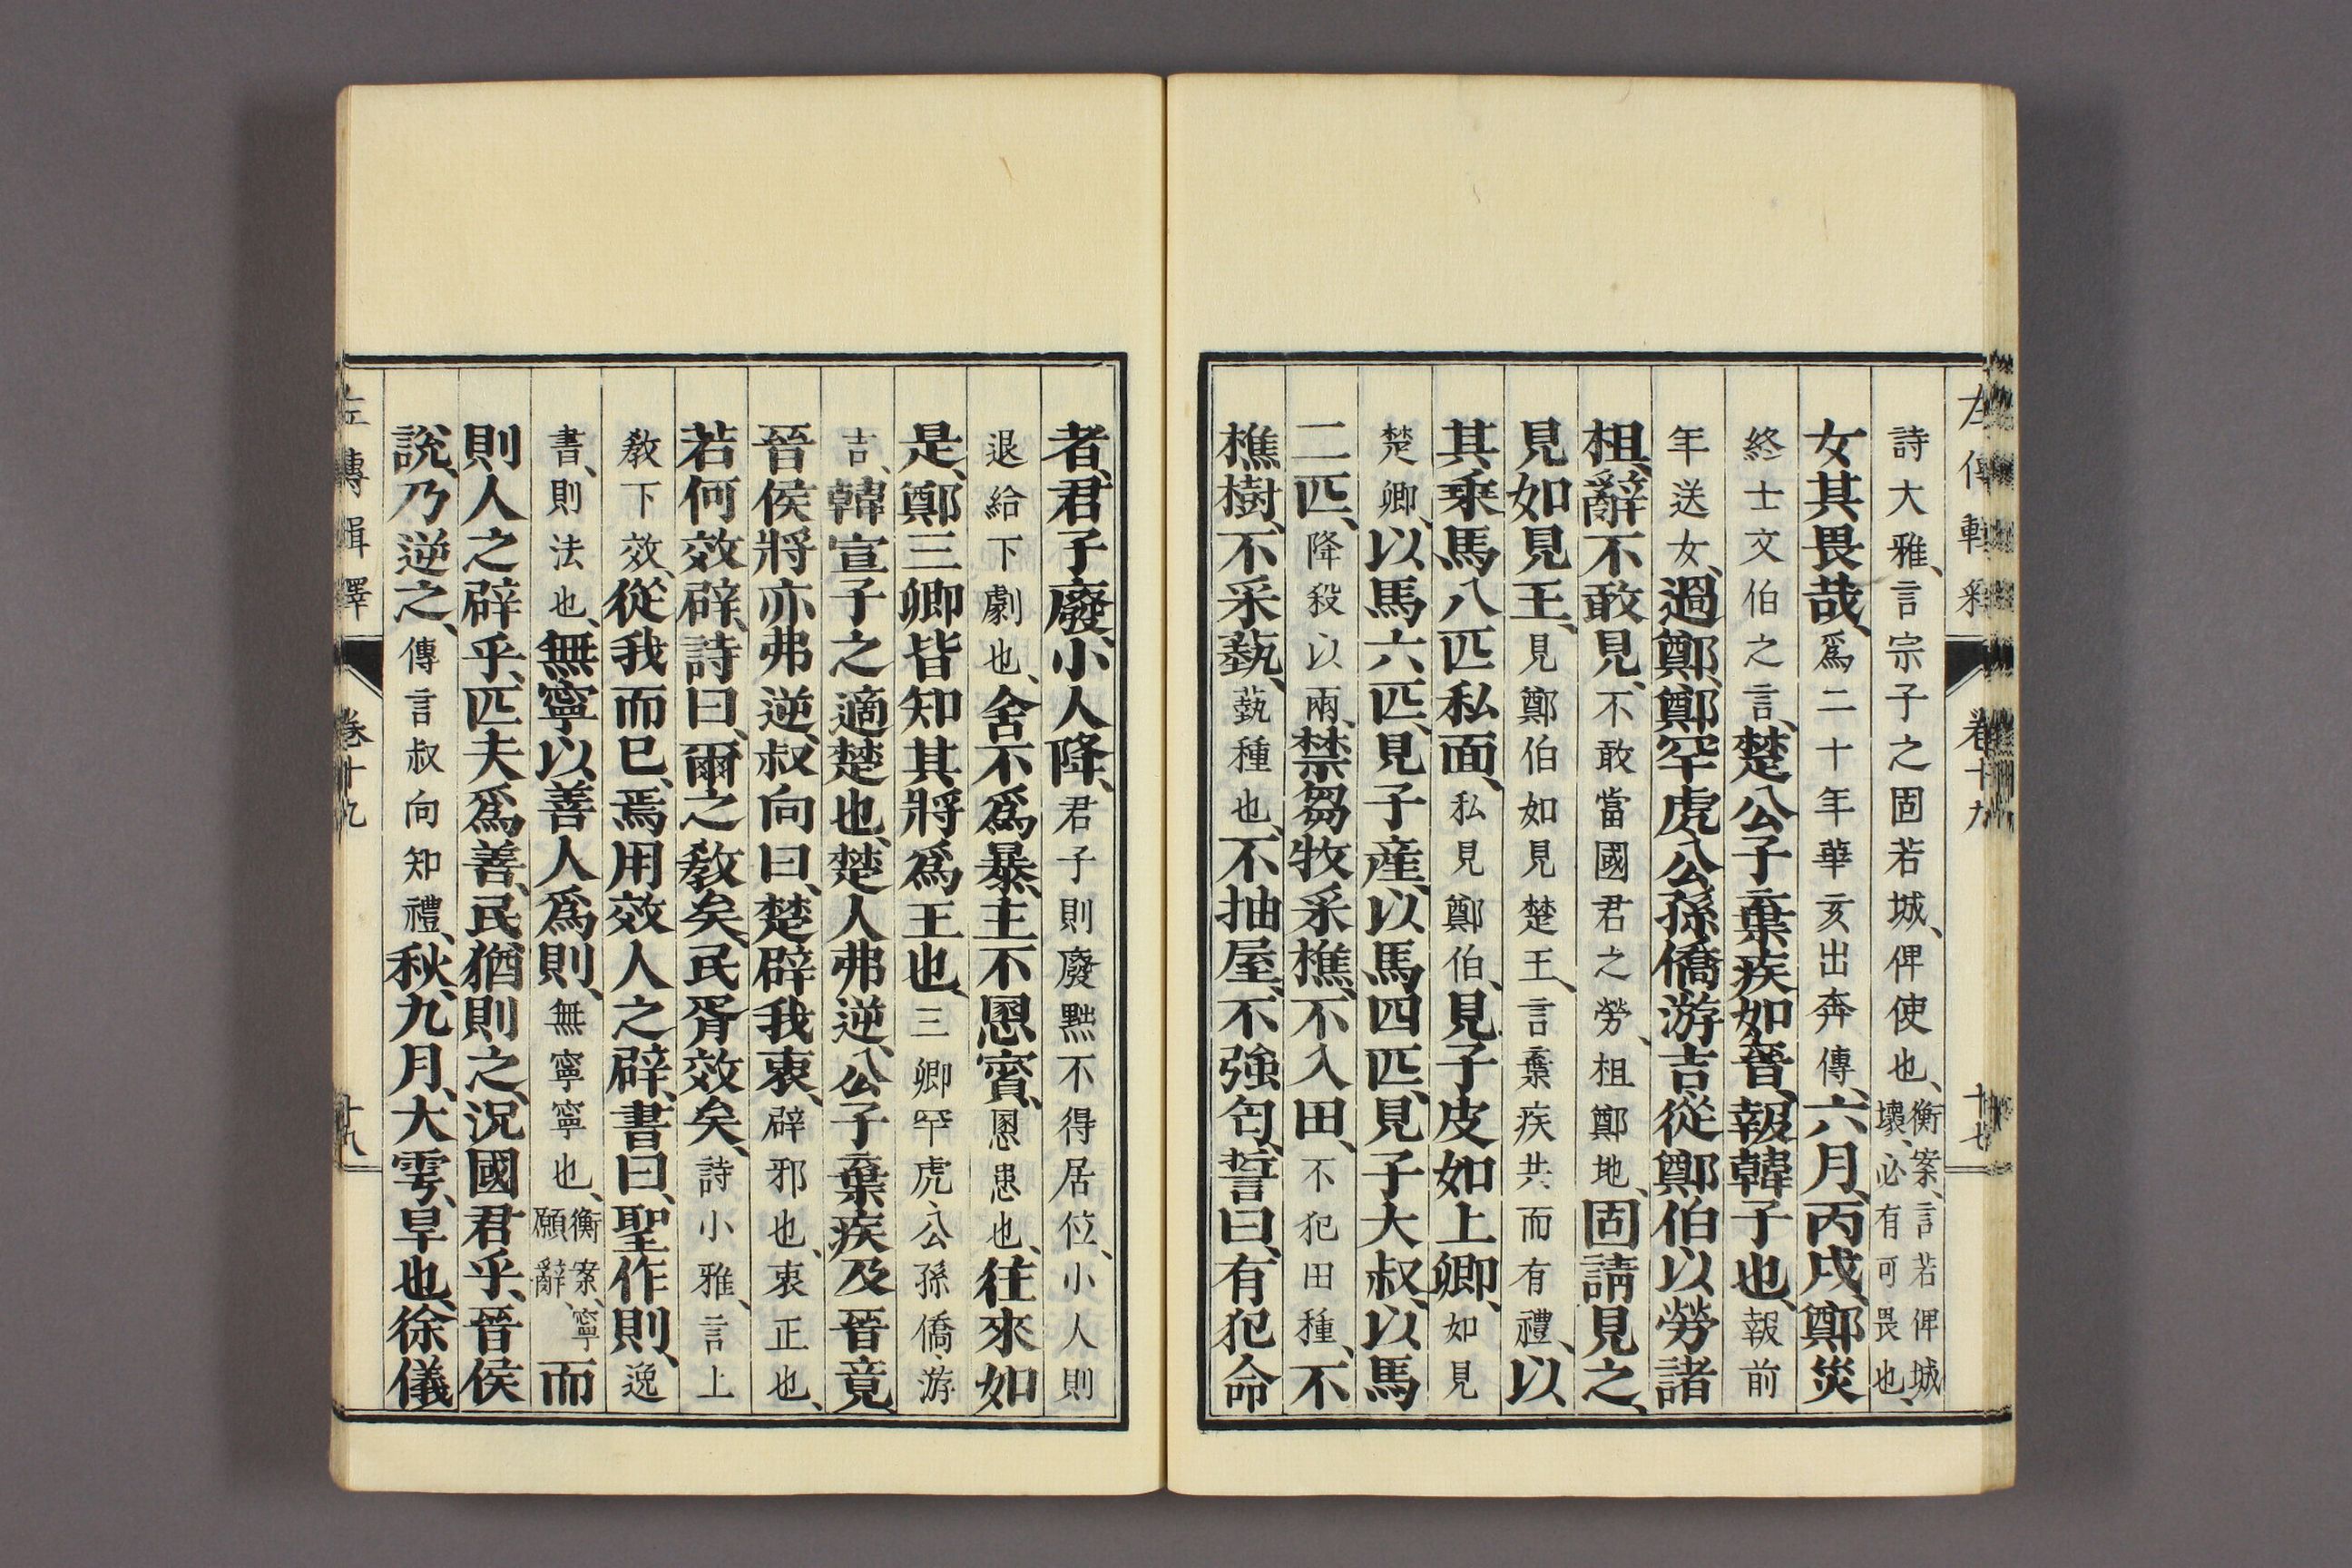 詩大雅、言宗子之固若城、俾使也、衡案、言若俾城壞、必有可畏也、
女其畏哉、爲二十年華亥出奔傳、六月、丙戌、鄭災
終士文伯之言、楚公子棄疾如晉、報韓子也、報前
年送女、過鄭、鄭罕虎公孫僑游吉、從鄭伯以勞諸
柤、辭不敢見、不敢當國君之勞、柤鄭地、固請見之、
見如見王、見鄭伯如見楚王、言棄疾共而有禮、以
其乘馬八匹私面、私見鄭伯、見子皮如上卿、如見
楚卿、以馬六匹、見子產、以馬四匹、見子大叔、以馬
二匹、降殺以兩、禁芻牧采樵、不入田、不犯田種、不
樵樹、不采蓺、蓺種也、不抽屋、不強匄、誓曰、有犯命
左傳輯釋 卷十九 十七
者、君子廢、小人降、君子則廢黜不得居位、小人則
退給下劇也、舍不爲暴、主不慁賓、慁患也、往來如
是、鄭三卿皆知其將爲王也、三卿罕虎公孫僑游
吉、韓宣子之適楚也、楚人弗逆、公子棄疾及晉竟
晉侯將亦弗逆、叔向曰、楚辟我衷、辟邪也、衷正也、
若何效辟、詩曰、爾之敎矣、民胥效矣、詩小雅、言上
敎下效、從我而已、焉用效人之辟、書曰、聖作則、逸
書、則法也、無寧以善人爲則、無寧寧也、衡案、寧願辭、而
則人之辟乎、匹夫爲善、民猶則之、況國君乎、晉侯
說、乃逆之、傳言叔向知禮、秋、九月、大雩、旱也、徐儀
左傳輯釋 卷十九 十八